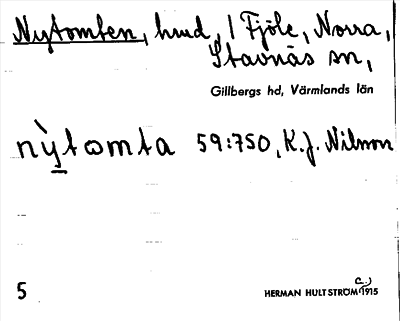 Nytomten, hmd, i Fjöle, Norra,
Stavnäs sn,
Gillbergs hd, Värmlands län
nỳtomta 59:750, K.J. Nilsson
5
HERMAN HULTSTRÖM c.) 1915